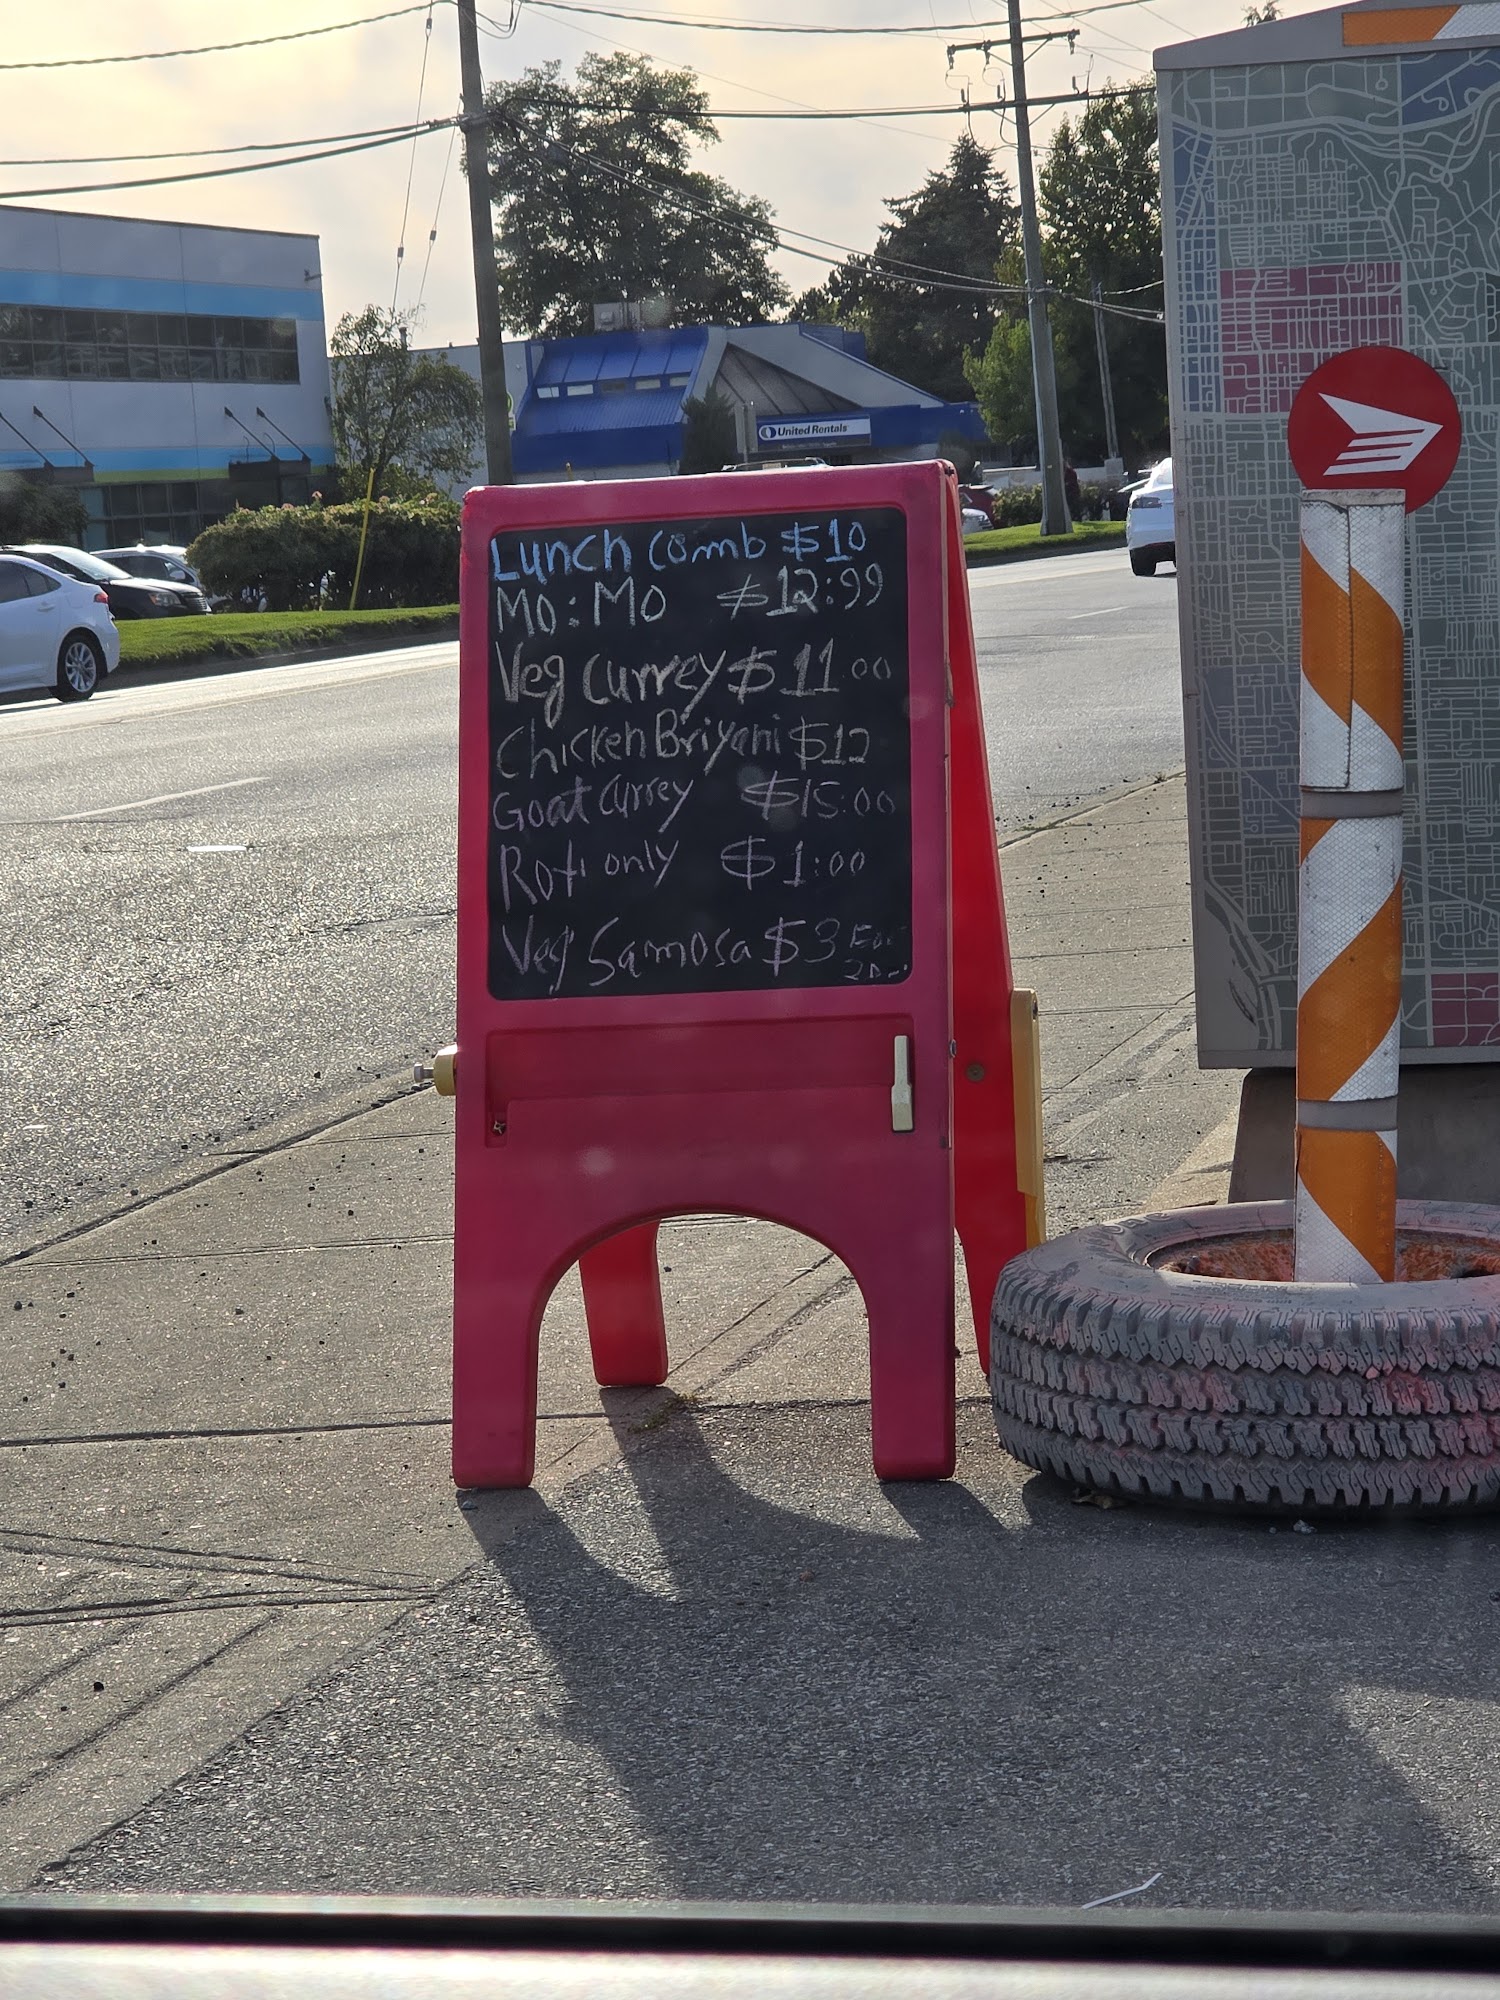 United Rentals
Lunch comb $10
Mo:Mo $12:99
Veg Currey $11.00
Chicken Briyani $12
Goat Currey $15:00
Roti only $1:00
Veg Samosa $3 For